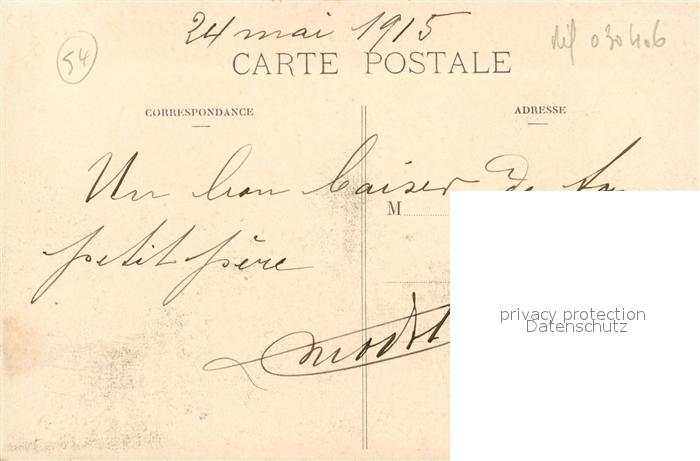 24 mai 1915
54
030406
CARTE POSTALE
CORRESPONDANCE
ADRESSE
Un bon baiser de
M
petit père
privacy protection
Datenschutz